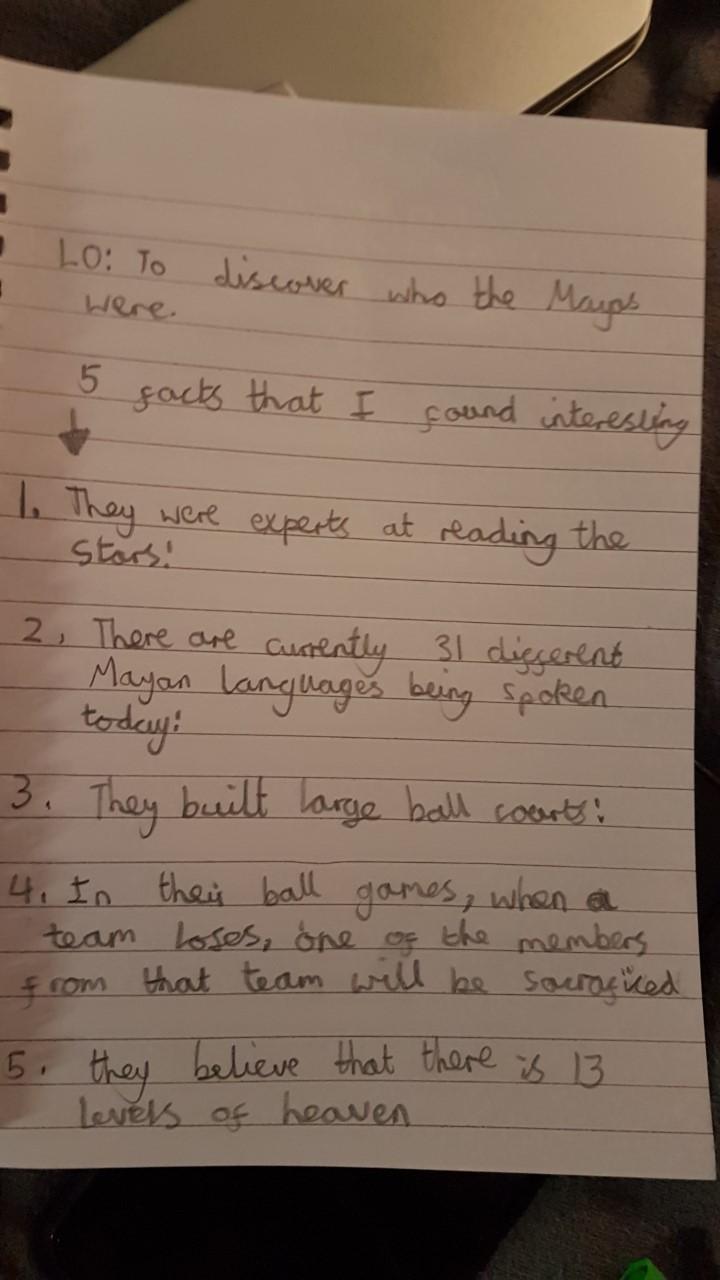 LO: To discover who the Mayas
were.
5 facts that I found interesting
↓
1. They were experts at reading the
stars!
2, There are currently 31 different
Mayan languages being spoken
today!
3. They built large ball courts!
4. In their ball games, when a
team loses, one of the members
from that team will be sacraficed
5. they believe that there is 13
levels of heaven